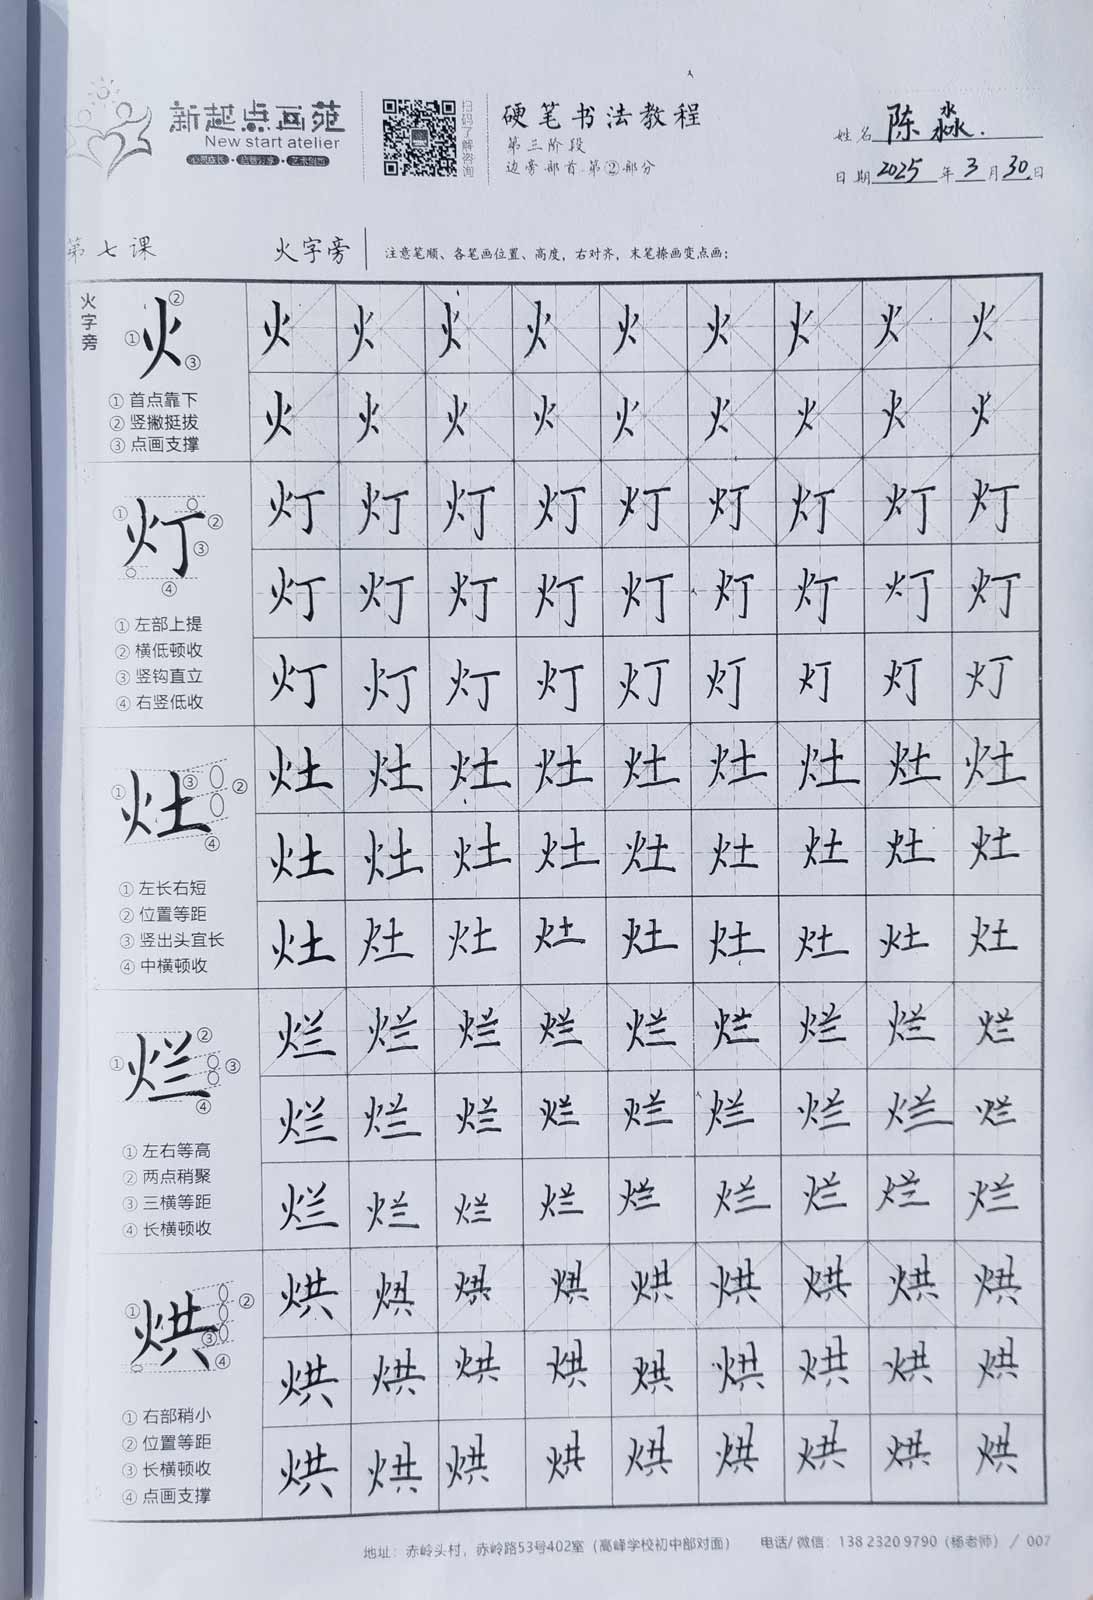 新起点画苑
New start atelier
扫码了解咨询
硬笔书法教程
第三阶段
边旁部首·第②部分
姓名 陈淼.
日期 2025 年 3 月 30 日
第七课 火字旁 注意笔顺、各笔画位置、高度，右对齐，末笔捺画变点画；
火字旁
火
① ② ③
① 首点靠下
② 竖撇挺拔
③ 点画支撑
火 火 火 火 火 火 火 火 火
火 火 火 火 火 火 火 火 火
灯
① ② ③ ④
① 左部上提
② 横低顿收
③ 竖钩直立
④ 右竖低收
灯 灯 灯 灯 灯 灯 灯 灯 灯
灯 灯 灯 灯 灯 灯 灯 灯 灯
灯 灯 灯 灯 灯 灯 灯 灯 灯
灶
① ③ ② ④
① 左长右短
② 位置等距
③ 竖出头宜长
④ 中横顿收
灶 灶 灶 灶 灶 灶 灶 灶 灶
灶 灶 灶 灶 灶 灶 灶 灶 灶
灶 灶 灶 灶 灶 灶 灶 灶 灶
烂
① ② ③ ④
① 左右等高
② 两点稍聚
③ 三横等距
④ 长横顿收
烂 烂 烂 烂 烂 烂 烂 烂 烂
烂 烂 烂 烂 烂 烂 烂 烂 烂
烂 烂 烂 烂 烂 烂 烂 烂 烂
烘
① ② ③ ④
① 右部稍小
② 位置等距
③ 长横顿收
④ 点画支撑
烘 烘 烘 烘 烘 烘 烘 烘 烘
烘 烘 烘 烘 烘 烘 烘 烘 烘
烘 烘 烘 烘 烘 烘 烘 烘 烘
地址：赤岭头村，赤岭路53号402室（高峰学校初中部对面） 电话/微信：138 2320 9790（杨老师） / 007